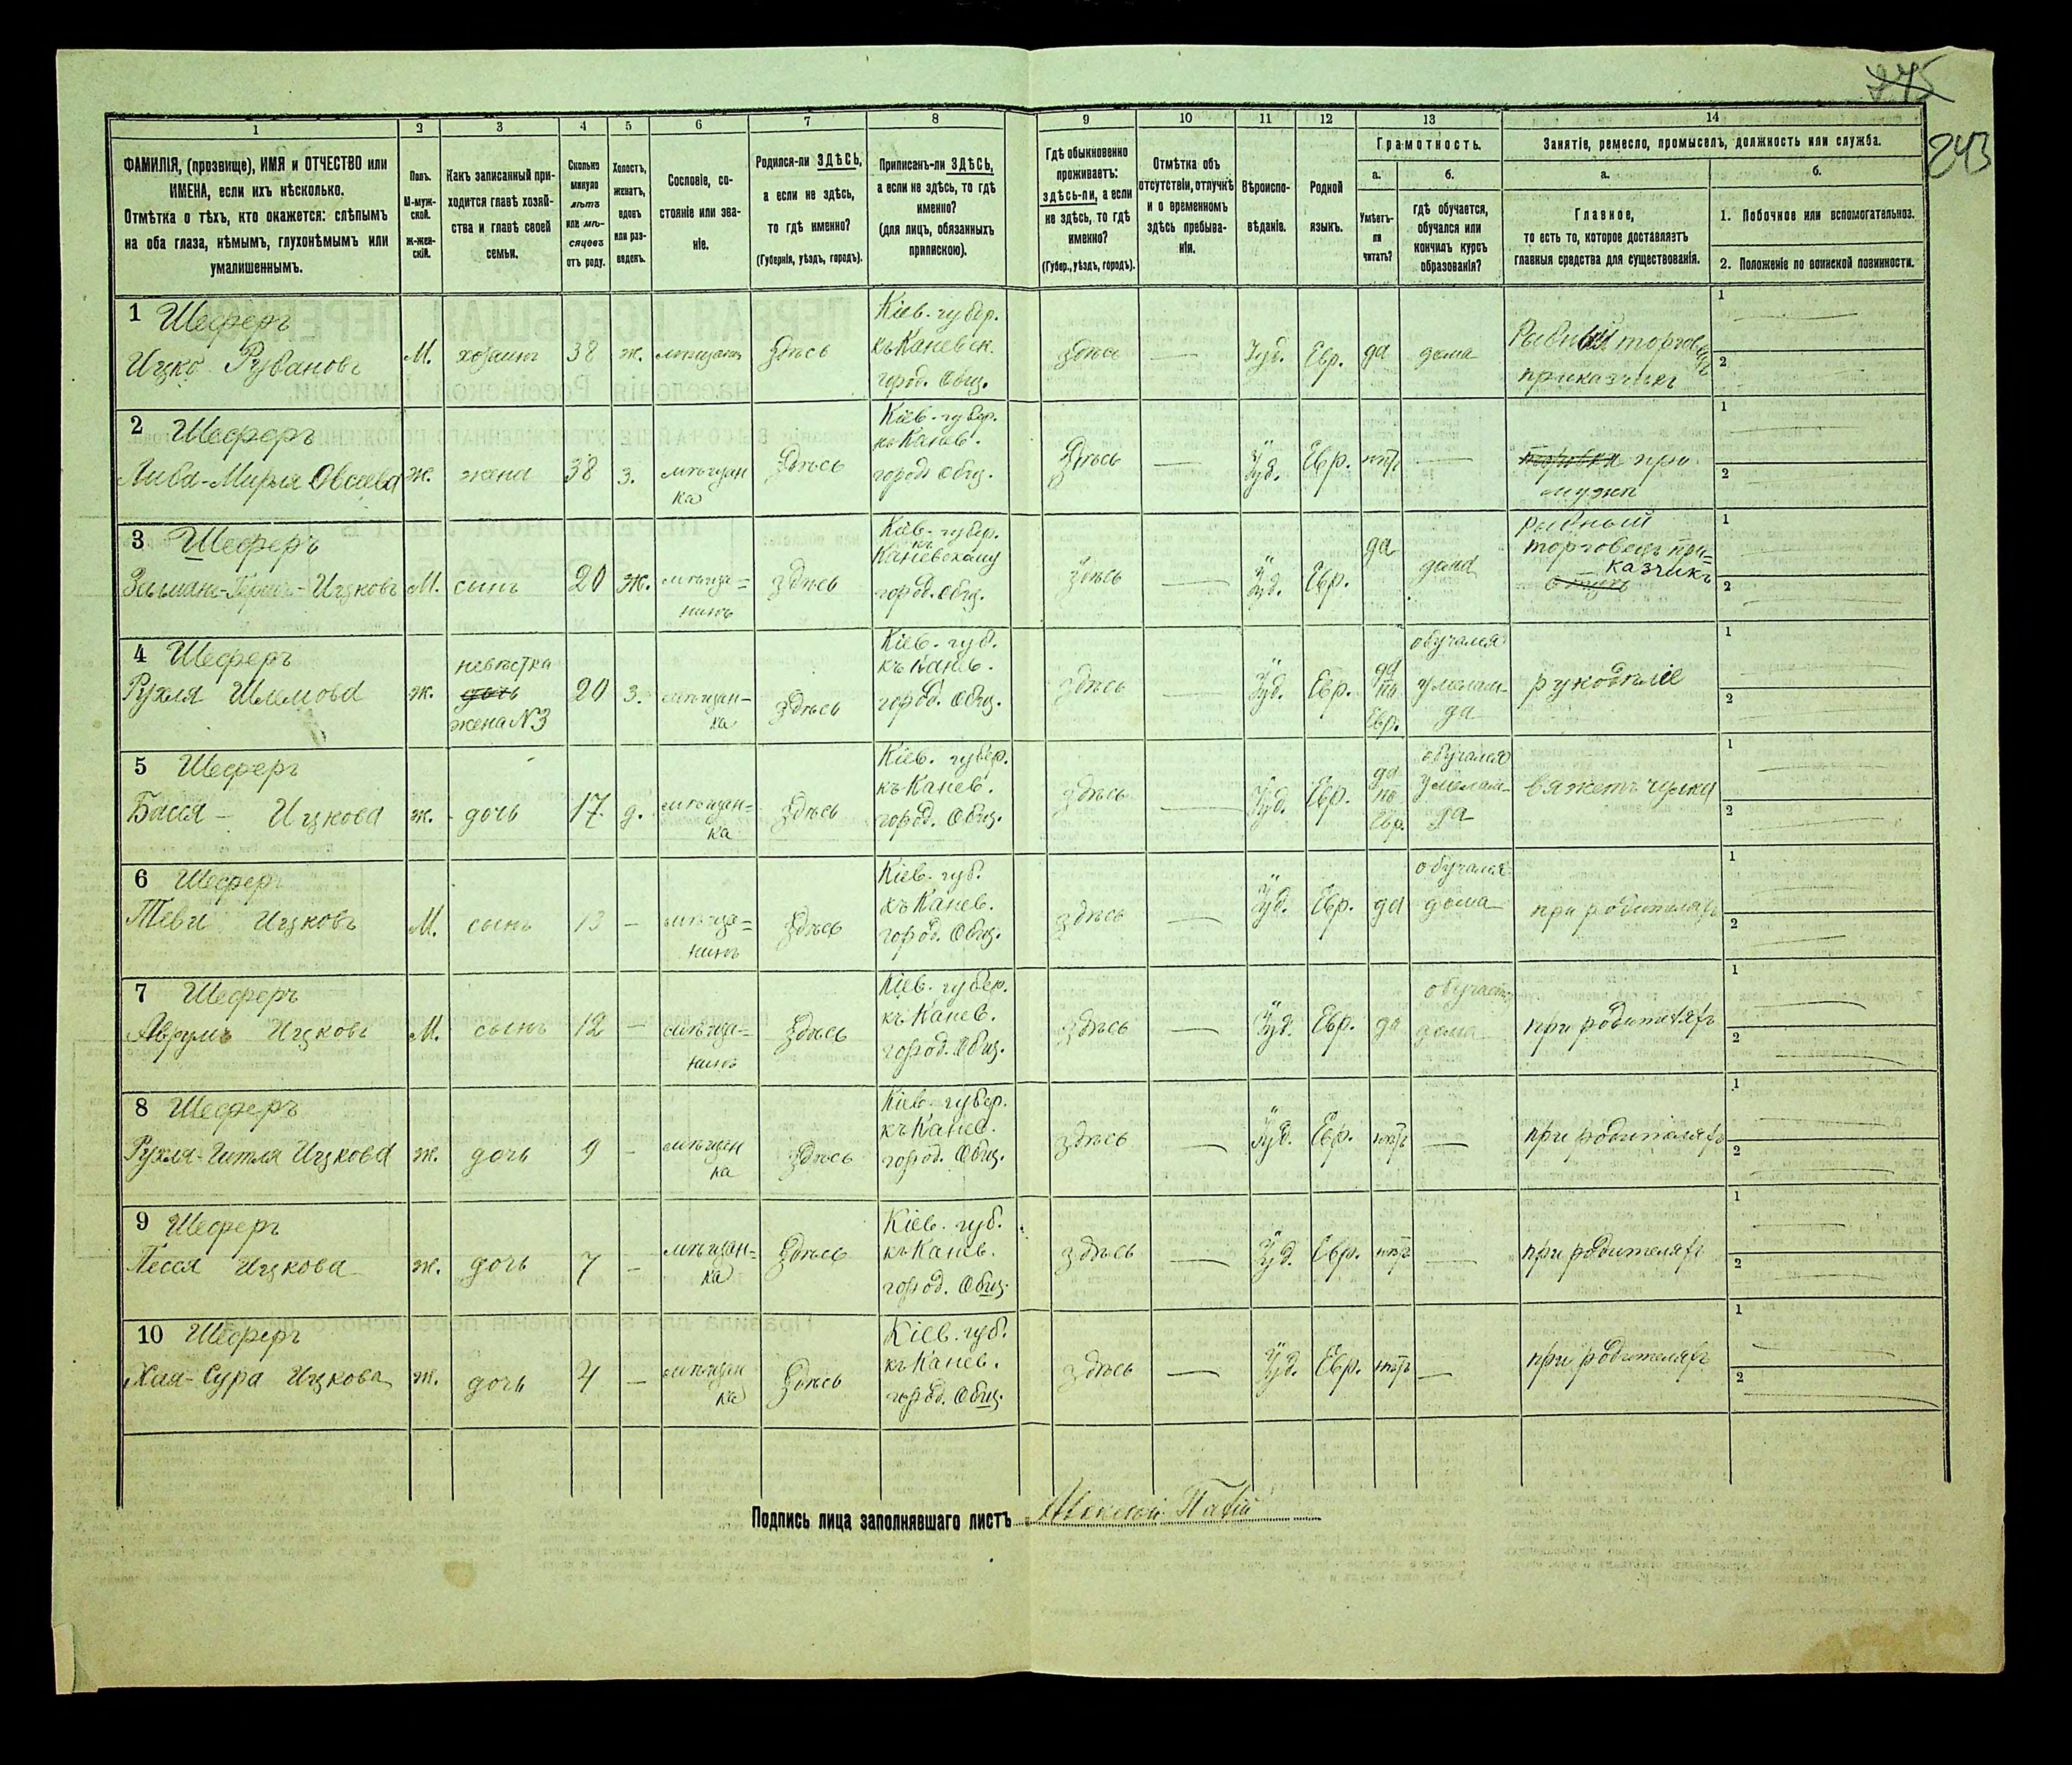 275
243
1 2 3 4 5 6 7 8 9 10 11 12 13 14
ФАМИЛІЯ, (прозвище), ИМЯ и ОТЧЕСТВО или ИМЕНА, если ихъ нѣсколько.
Отмѣтка о тѣхъ, кто окажется: слѣпымъ на оба глаза, нѣмымъ, глухонѣмымъ или умалишеннымъ.
Полъ. М-мужской. Ж-женскій.
Какъ записанный приходится главѣ хозяйства и главѣ своей семьи.
Сколько минуло лѣтъ или мѣсяцевъ отъ роду.
Холостъ, женатъ, вдовъ или разведенъ.
Сословіе, состояніе или званіе.
Родился-ли ЗДѢСЬ, а если не здѣсь, то гдѣ именно?
(Губернія, уѣздъ, городъ).
Приписанъ-ли ЗДѢСЬ, а если не здѣсь, то гдѣ именно?
(для лицъ, обязанныхъ припискою).
Гдѣ обыкновенно проживаетъ: здѣсь-ли, а если не здѣсь, то гдѣ именно?
(Губер., уѣздъ, городъ).
Отмѣтка объ отсутствіи, отлучкѣ и о временномъ здѣсь пребываніи.
Вѣроисповѣданіе.
Родной языкъ.
Грамотность.
а. Умѣетъ-ли читать?
б. гдѣ обучается, обучался или кончилъ курсъ образованія?
Занятіе, ремесло, промыселъ, должность или служба.
а. Главное, то есть то, которое доставляетъ главныя средства для существованія.
б.
1. Побочное или вспомогательное.
2. Положеніе по воинской повинности.
1 Шеферъ
Ицко Рувановъ М. хозяинъ 38 ж. мѣщанинъ Здѣсь Кіев. губер. къ Каневск. город. Общ. здѣсь — Іуд. Евр. да дома Рыбный торговецъ приказчикъ 1 2
2 Шеферъ
Либа-Мирля Овсѣева ж. жена 38 з. мѣщанка Здѣсь Кіев. губер. къ Канев. город. Общ. Здѣсь — Іуд. Евр. нѣтъ — при мужѣ 1 2
3 Шеферъ
Ицковъ М. сынъ 20 ж. мѣщанинъ здѣсь Кіев. губер. къ Каневскому город. Общ. здѣсь — Іуд. Евр. да дома рыбный торговецъ приказчикъ 1 2
4 Шеферъ
Рухля Шлемова ж. невѣстка жена N3 20 з. мѣщанка здѣсь Кіев. губ. къ Канев. город. Общ. здѣсь — Іуд. Евр. да по Евр. обучалась у меламда рукодѣліе 1 2
5 Шеферъ
Бася - Ицкова ж. дочь 17 д. мѣщанка здѣсь Кіев. губер. къ Канев. город. Общ. здѣсь — Іуд. Евр. да по Евр. обучалась у меламда вяжетъ чулки 1 2
6 Шеферъ
Теви Ицковъ М. сынъ 13 — мѣщанинъ здѣсь Кіев. губ. къ Канев. город. Общ. здѣсь — Іуд. Евр. да обучался дома при родителяхъ 1 2
7 Шеферъ
Аврумъ Ицковъ М. сынъ 12 — мѣщанинъ здѣсь Кіев. губер. къ Канев. город. Общ. здѣсь — Іуд. Евр. да обучается дома при родителяхъ 1 2
8 Шеферъ
Рухля-Гитля Ицкова ж. дочь 9 — мѣщанка здѣсь Кіев. губер. къ Канев. город. Общ. здѣсь — Іуд. Евр. нѣтъ — при родителяхъ 1 2
9 Шеферъ
Песся Ицкова ж. дочь 7 — мѣщанка Здѣсь Кіев. губ. къ Канев. город. Общ. здѣсь — Іуд. Евр. нѣтъ — при родителяхъ 1 2
10 Шеферъ
Хая-Сура Ицкова ж. дочь 4 — мѣщанка Здѣсь Кіев. губ. къ Канев. город. Общ. здѣсь — Іуд. Евр. нѣтъ — при родителяхъ 1 2
Подпись лица заполнявшаго листъ Алексѣй